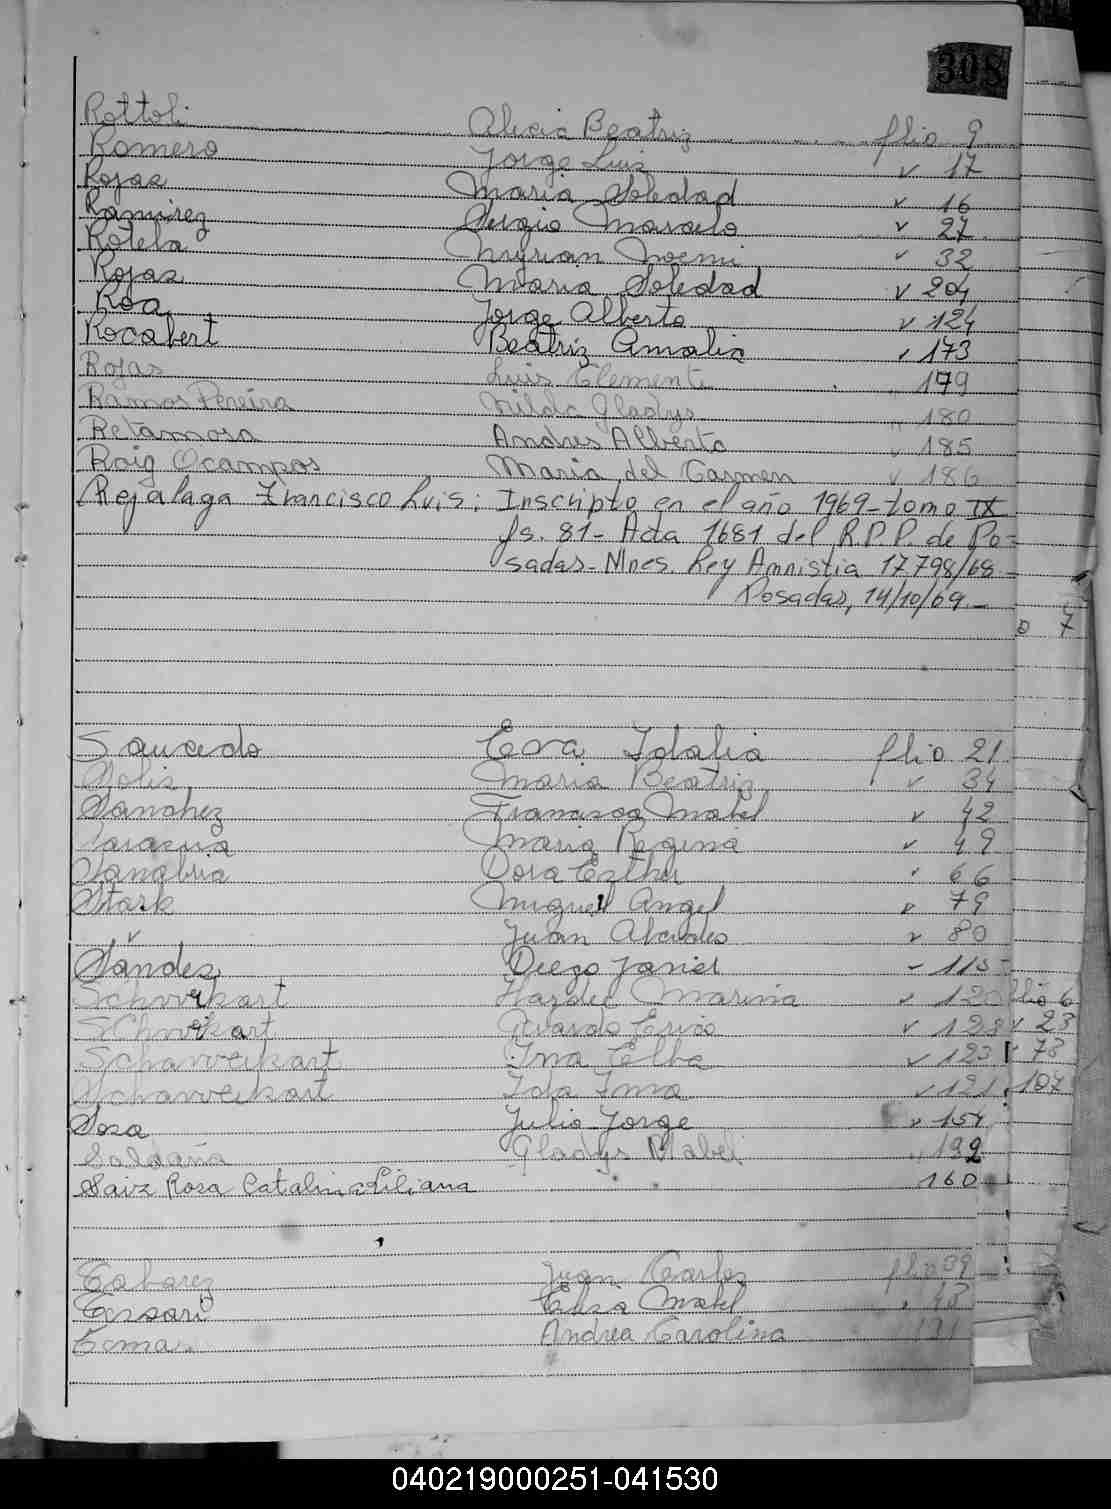 308
Rottoli Alicia Beatriz flio 9
Romero Jorge Luis " 17
Rojas Maria Soledad " 16
Ramirez Sergio Marcelo " 27
Rotela Myrian Noemi " 32
Rojas Maria Soledad " 204
Roa Jorge Alberto " 124
Rocabert Beatriz Amalia " 173
Rojas Luis Clemente " 179
Ramos Pereira Nilda Gladys " 180
Retamosa Andres Alberto " 185
Roig Ocampos Maria del Carmen " 186
Rejalaga Francisco Luis: Inscripto en el año 1969-tomo IX
fs. 81- Acta 1681 del R.P.P. de Po=
sadas- Mnes. Ley Amnistia 17.798/68
Posadas, 14/10/69.-
o 7
Saucedo Eva Idalia flio 21
Solis Maria Beatriz " 34
Sanchez Francisca Mabel " 42
Maria Regina " 49
Sanabria Dora Esther " 66
Stark Miguel Angel " 79
" Juan " 80
Sandes Diego Javier - 115
Schweikart Marina " 120 flio 6
Schweikart Erico " 128 " 23
Schanveikart Ina Elba " 123 " 78
Schanveikart Ida Irma " 121 " 107
Sosa Julio Jorge " 154
Saldaña Gladys Mabel " 192
Saiz Rosa Catalina Liliana 160
Juan Carlos flio 39
Mabel
Andrea Carolina
040219000251-041530